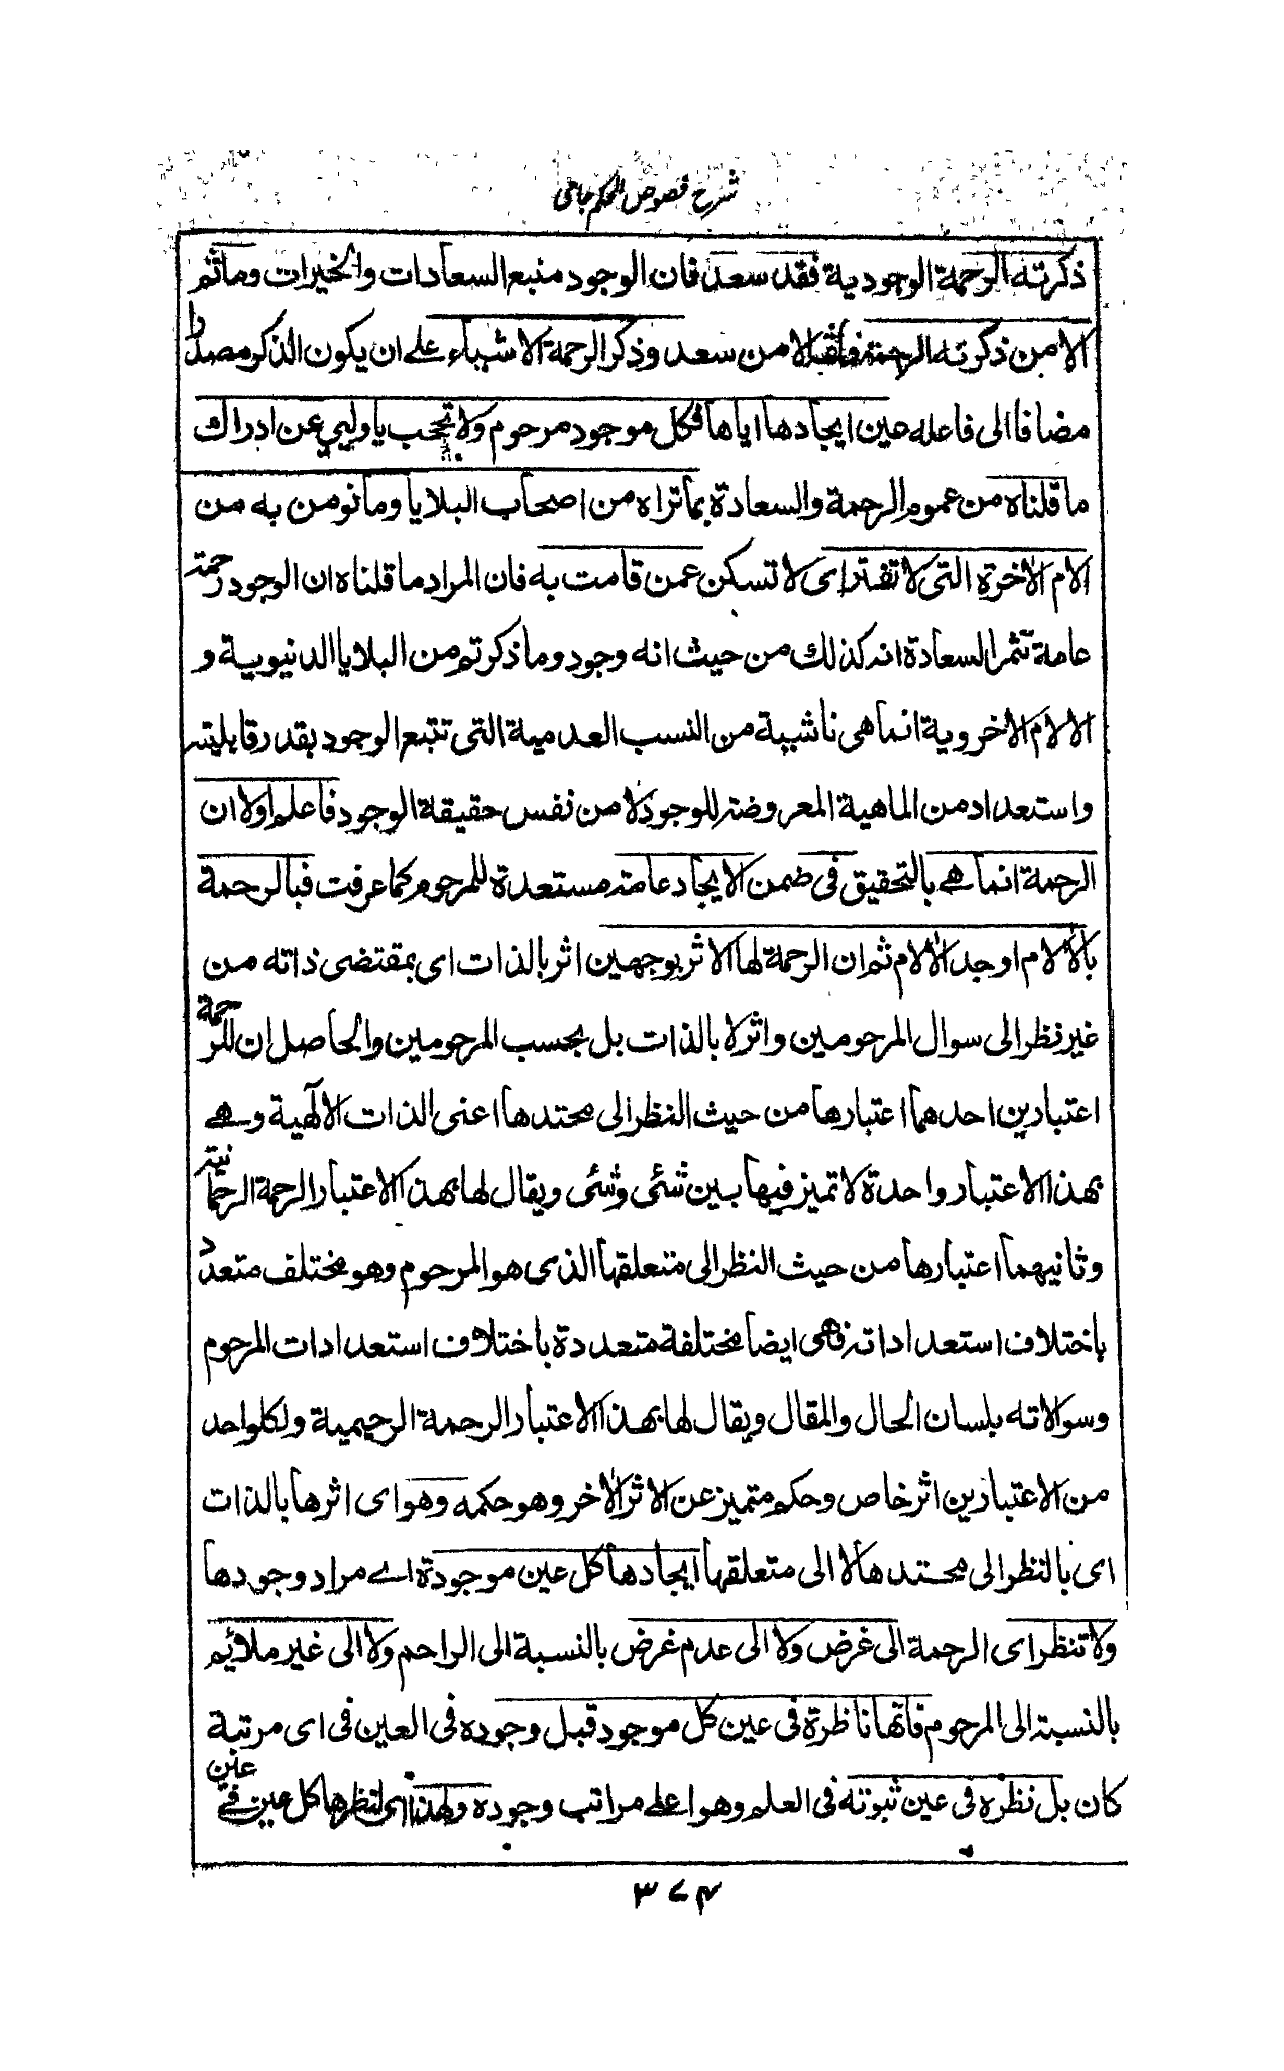 شرح فصوص الحكم جامى
ذكرته الرحمة الوجودية فقد سعد فان الوجود منبع السعادات والخيرات وماثم
الا من ذكرته الرحمة الا من سعد وذكر الرحمة الاشياء على ان يكون الذكر مصدرا
مضافا الى فاعله عين ايجادها اياها فكل موجود مرحوم ولا تحجب ياوليى عن ادراك
ما قلناه من عموم الرحمة والسعادة بما تراه من اصحاب البلايا وما نومن به من
الام الاخرة التى لا تفتر اى لا تسكن عمن قامت به فان المراد مما قلناه ان الوجود رحمته
عامة تثمر السعادة انه كذلك من حيث انه وجود وما ذكرتم من البلايا الدنيوية و
الالام الاخروية انما هى ناشيية من النسب العدمية التى تتبع الوجود بقدر قابليته
واستعداد من الماهية المعروضته للوجود لا من نفس حقيقة الوجود فاعلم اولا ان
الرحمة انما هے بالتحقيق فى ضمن الايجاد عامته مستعدة للمرحوم كما عرفت فبالرحمة
بالالام اوجد الالام ثم ان الرحمة لها الاثر بوجهين اثر بالذات اى بمقتضى ذاته من
غير نظر الى سوال المرحومين واثر لا بالذات بل بحسب المرحومين والحاصل ان للرحمة
اعتبارين احدهما اعتبارها من حيث النظر الى محتدها اعنى الذات الالهية وهے
بهذا الاعتبار واحدة لا تميز فيها بين شئى وشئى ويقال لها بهذا الاعتبار الرحمة الرحمانيته
وثانيهما اعتبارها من حيث النظر الى متعلقها الذى هو المرحوم وهو مختلف متعدد
باختلاف استعداداته فهى ايضا مختلفة متعددة باختلاف استعدادات المرحوم
وسوالاته بلسان الحال والمقال ويقال لها بهذا الاعتبار الرحمة الرحيمية ولكلواحد
من الاعتبارين اثر خاص وحكم متميز عن الاثر الاخر وهو حكمه وهو اى اثرها بالذات
اى بالنظر الى محتدها لا الى متعلقها ايجادها كل عين موجودة اے مراد وجودها
ولا تنظر اى الرحمة الى غرض ولا الى عدم غرض بالنسبة الى الراحم ولا الى غير ملائيم
بالنسبته الى المرحوم فانها ناظرة فى عين كل موجود قبل وجوده فى العين فى اى مرتبة
كان بل نظره فى عين ثبوته فى العلم وهو اعلے مراتب وجوده ولهذا اى لنظرها كل عين فے عين
٣٧٤